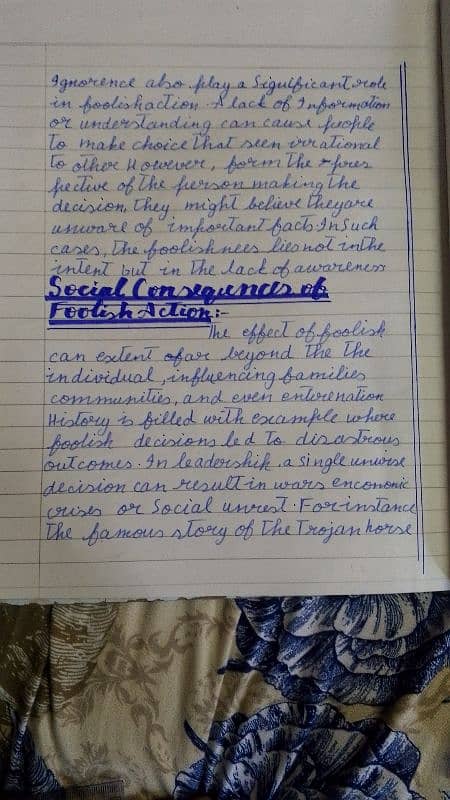 Ignorence also play a Significant role
in foolish action. A lack of Information
or understanding can cause people
to make choice that seen irrational
to other However, form the pres
pective of the person making the
decision, they might believe they are
unware of important facts. In Such
cases, the foolishnees lies not in the
intent but in the lack of awareness
Social Consequences of
Foolish Action:-
The effect of foolish
can extent far beyond the the
individual, influencing families
communities, and even enterenation
History is filled with example where
foolish decisions led to disastrous
outcomes. In leadership, a single unwise
decision can result in wars enconomic
crises or Social unrest. For instance
the famous story of the Trojan horse